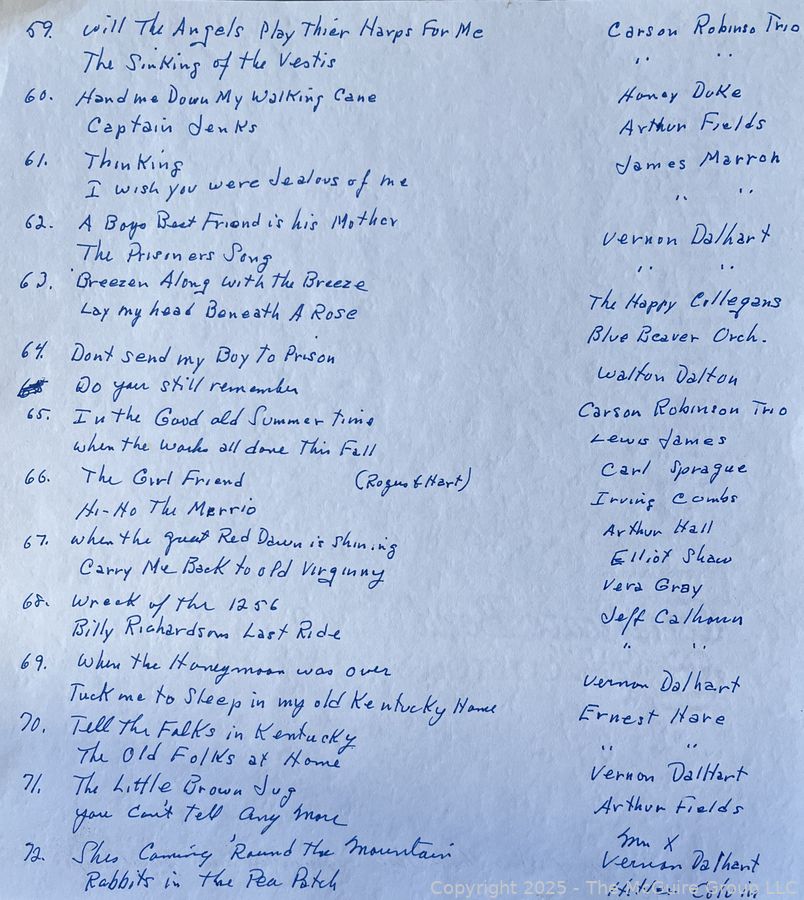 59. Will The Angels Play Thier Harps For Me Carson Robinso Trio
The Sinking of the Vestis " "
60. Hand me Down My Walking Cane Honey Duke
Captain Jenks Arthur Fields
61. Thinking James Marron
I wish you were Jealous of me " "
62. A Boys Best Friend is his Mother Vernon Dalhart
The Prisiners Song " "
63. Breezen Along with the Breeze The Happy Collegans
Lay my head Beneath A Rose Blue Beaver Orch.
64. Dont send my Boy To Prison Walton Dalton
Do you still remember Carson Robinson Trio
65. In the Good old Summer time Lewis James
When the Works all done This Fall Carl Sprague
66. The Girl Friend (Rogus & Hart) Irving Combs
Hi-Ho The Merrio Arthur Hall
67. When the great Red Dawn is shining Elliot Shaw
Carry Me Back to old Virginny Vera Gray
68. Wreck of the 1256 Jeff Calhoun
Billy Richardsons Last Ride " "
69. When the Honeymoon was over Vernon Dalhart
Tuck me to Sleep in my old Kentucky Home Ernest Hare
70. Tell The Folks in Kentucky " "
The Old Folks at Home Vernon DalHart
71. The Little Brown Jug Arthur Fields
you Can't Tell Any More Mr X
72. Shes Coming 'Round The Mountain Vernon Dalhart
Rabbits in the Pea Patch
Copyright 2025 - The McGuire Group LLC